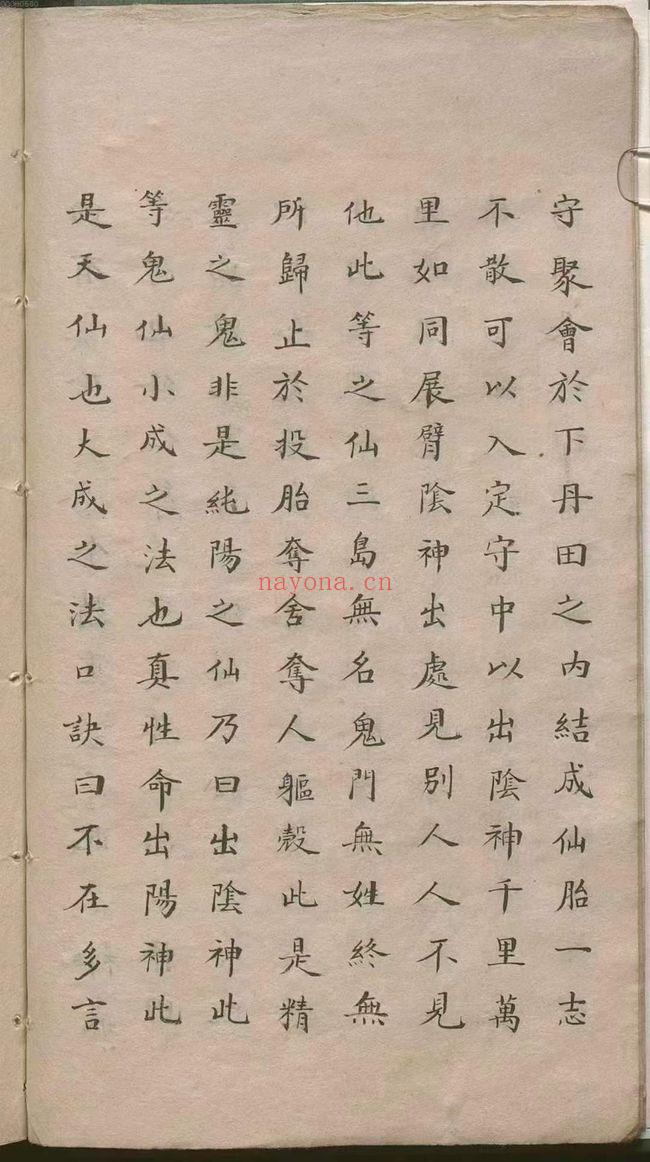 守聚會於下丹田之内結成仙胎一志
不散可以入定守中以出陰神千里萬
里如同展臂陰神出處見别人人不見
他此等之仙三島無名鬼門無姓終無
所歸止於投胎奪舍奪人軀殼此是精
靈之鬼非是純陽之仙乃曰出陰神此
等鬼仙小成之法也真性命出陽神此
是天仙也大成之法口訣曰不在多言
nayona.cn